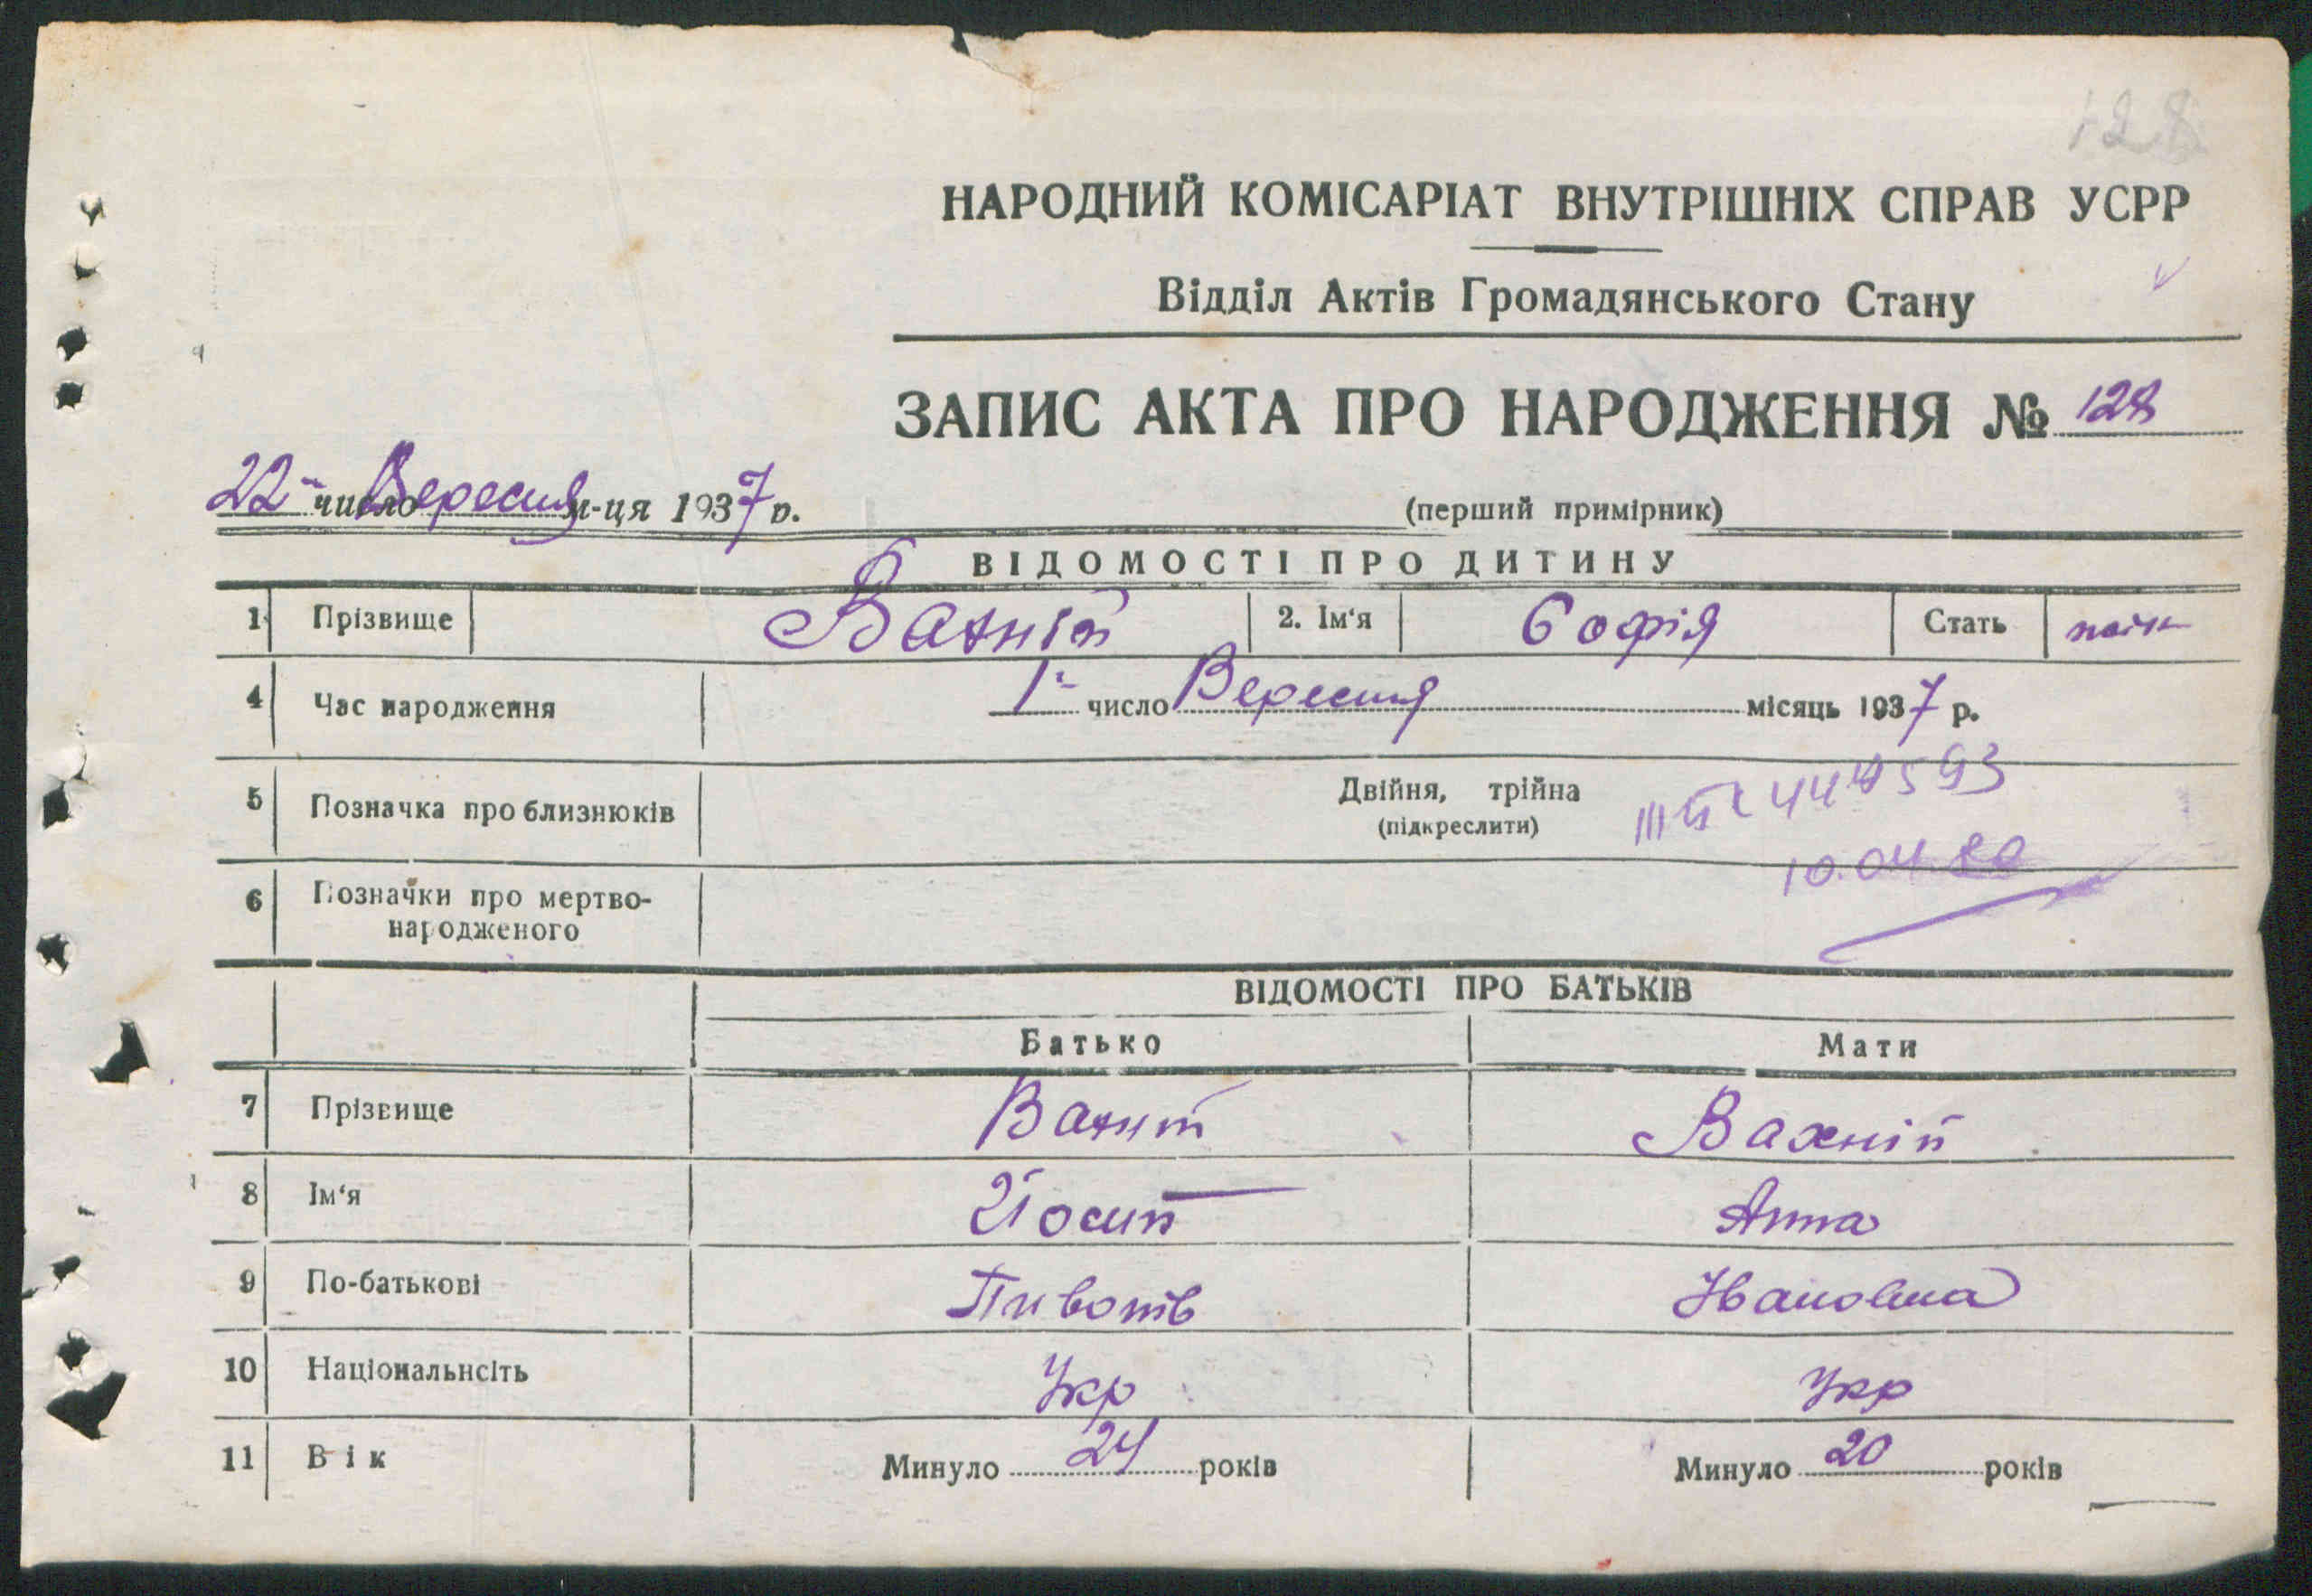 128
НАРОДНИЙ КОМІСАРІАТ ВНУТРІШНІХ СПРАВ УСРР
Відділ Актів Громадянського Стану
ЗАПИС АКТА ПРО НАРОДЖЕННЯ № 128
22 число Вересня м-ця 1937 р.
(перший примірник)
ВІДОМОСТІ ПРО ДИТИНУ
1 Прізвище Вахній 2. Ім'я Софія Стать
4 Час народження 1 число Вересня місяць 1937 р.
5 Позначка про близнюків Двійня, трійна
(підкреслити)
10.04.80
6 Позначки про мертво-
народженого
ВІДОМОСТІ ПРО БАТЬКІВ
Батько Мати
7 Прізвище Вахній
8 Ім'я Йосип Анна
9 По-батькові Івановна
10 Національнсіть Укр Укр
11 Вік Минуло 24 років Минуло 20 років